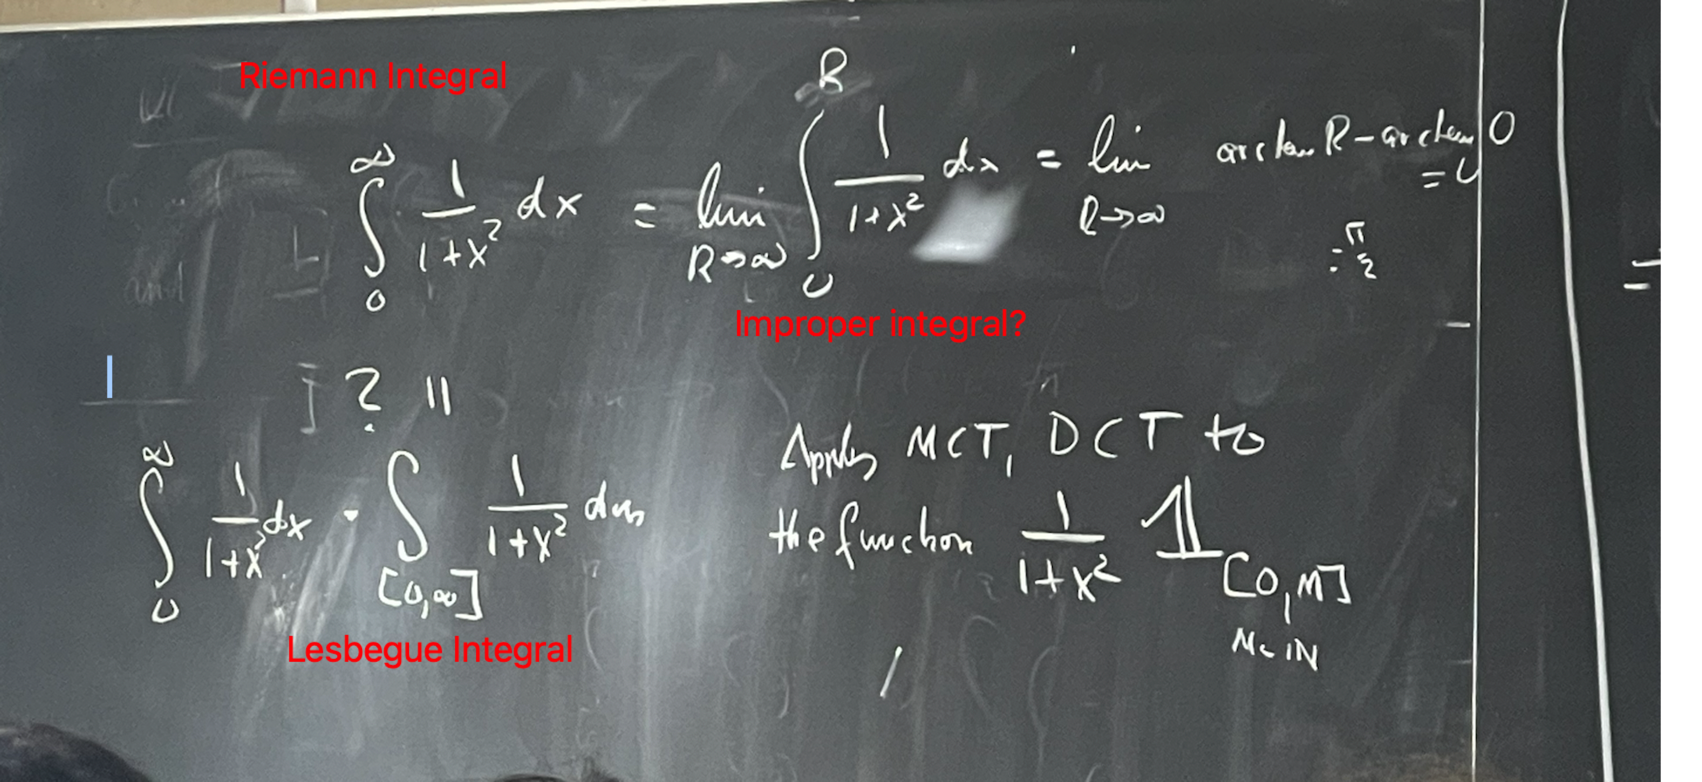 Riemann Integral
∞∫0 1/(1+x²) dx = lim R→∞ R∫0 1/(1+x²) dx = lim R→∞ arctan R − arctan 0
= 0
= π/2
Improper integral?
and
? ||
∞∫0 1/(1+x²) dx = ∫[0,∞] 1/(1+x²) dm
Lesbegue Integral
Apply MCT, DCT to
the function 1/(1+x²) 𝟙[0,M]
M∈ℕ